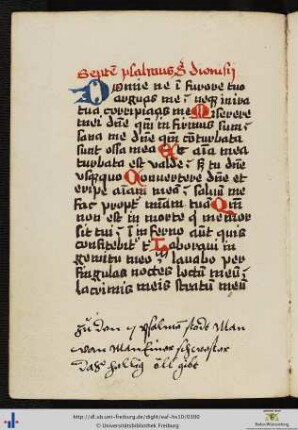 Septē psalmus S dionisij
Domne ne ī furore tuo
arguas me : neqȝ in ira
tua corripias me Miserere
mei dn̄e qm̄ in firmus sum :
sana me dn̄e qm̄ cōturbata
sunt ossa mea Et aīa mea
turbata est valde : sꝫ tu dn̄e
vsqꝫquo Conuertere dn̄e et
eripe aīam meā : saluū me
fac propt̄ mīam tua Qm̄
non est in morte q̄ memor
sit tui : ī in ferno aūt quis
confitebit̄ t̄ Laboraui in
gemitu meo lauabo per
singulas noctes lectū meū :
lacrimis meis stratum meū
zu den 7 psalmē
http://dl.ub.uni-freiburg.de/diglit/
© Universitätsbibliothek Freiburg
Baden-Württemberg